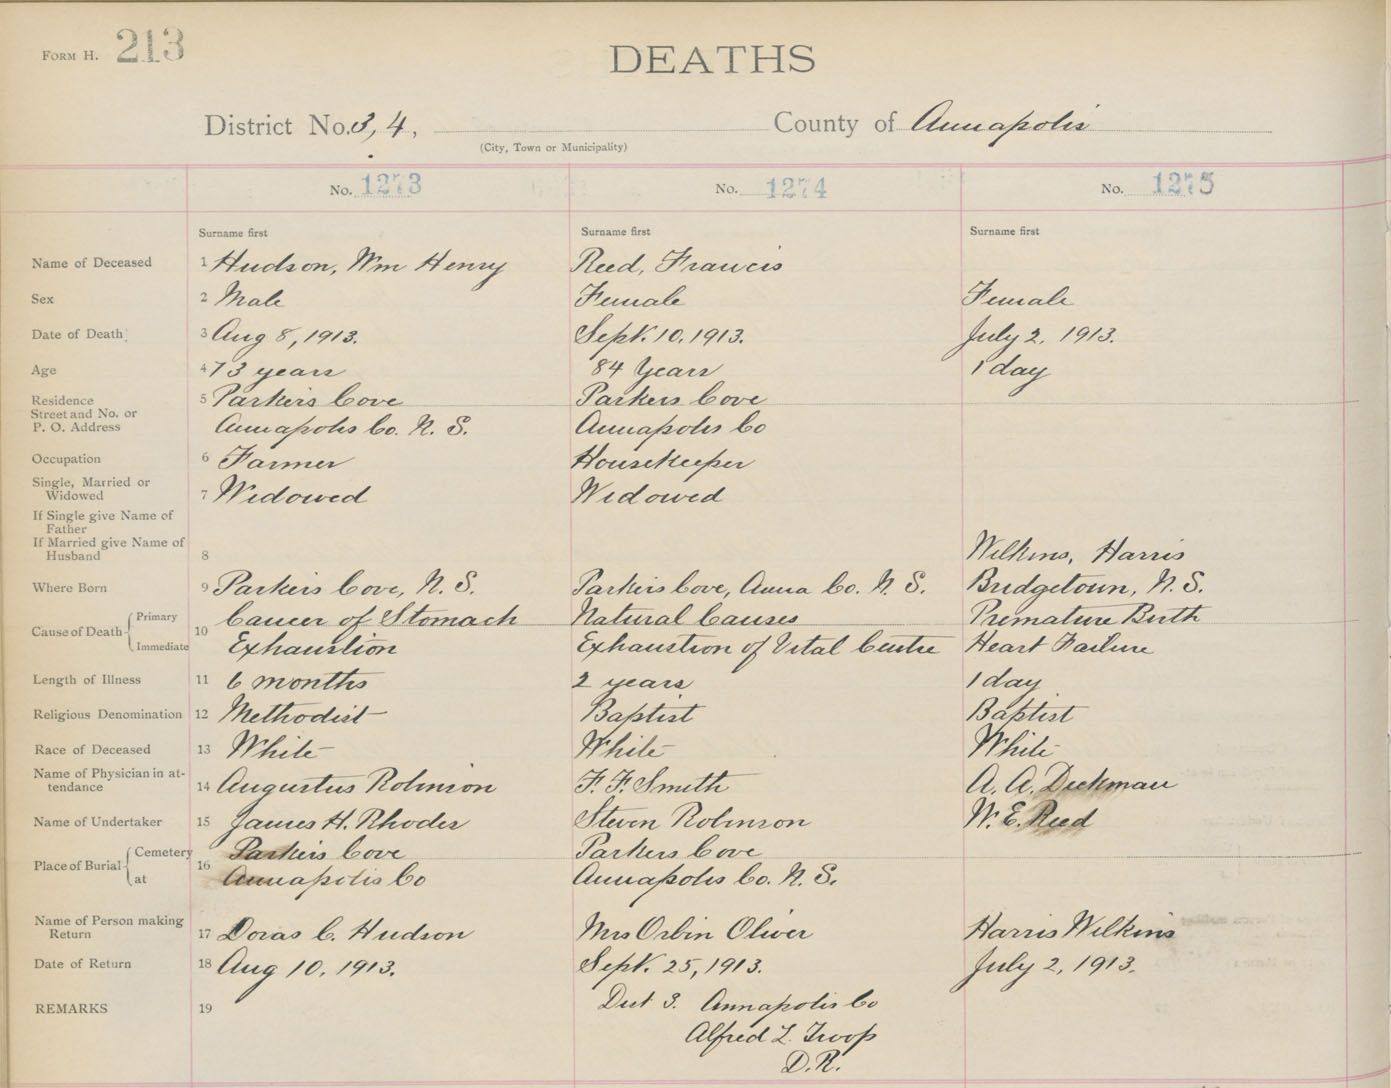 FORM H. 213
DEATHS
District No. 3, 4, County of Annapolis
(City, Town or Municipality)
No. 1273 No. 1274 No. 1275
Surname first Surname first Surname first
Name of Deceased 1 Hudson, Wm Henry Reed, Francis
Sex 2 Male Female Female
Date of Death 3 Aug 8, 1913. Sept. 10, 1913. July 2, 1913.
Age 4 73 years 84 Years 1 day
Residence 5 Parkers Cove Parkers Cove
Street and No. or
P. O. Address Annapolis Co. N. S. Annapolis Co
Occupation 6 Farmer Housekeeper
Single, Married or
Widowed 7 Widowed Widowed
If Single give Name of
Father
If Married give Name of
Husband 8 Wilkins, Harris
Where Born 9 Parkers Cove, N. S. Parkers Cove, Anna Co. N. S. Bridgetown, N. S.
Cause of Death 10 Primary Cancer of Stomach Natural Causes Premature Birth
Immediate Exhaustion Exhaustion of Vital Centre Heart Failure
Length of Illness 11 6 months 2 years 1 day
Religious Denomination 12 Methodist Baptist Baptist
Race of Deceased 13 White White White
Name of Physician in at-
tendance 14 Augustus Robinson F. F. Smith A. A. Deckman
Name of Undertaker 15 James H. Rhodes Steven Robinson W. E. Reed
Place of Burial 16 Cemetery Parkers Cove Parkers Cove
at Annapolis Co Annapolis Co. N. S.
Name of Person making
Return 17 Doras C. Hudson Mrs Orbin Oliver Harris Wilkins
Date of Return 18 Aug 10, 1913. Sept. 25, 1913. July 2, 1913.
REMARKS 19 Dist 3. Annapolis Co
Alfred L. Troop
D. R.